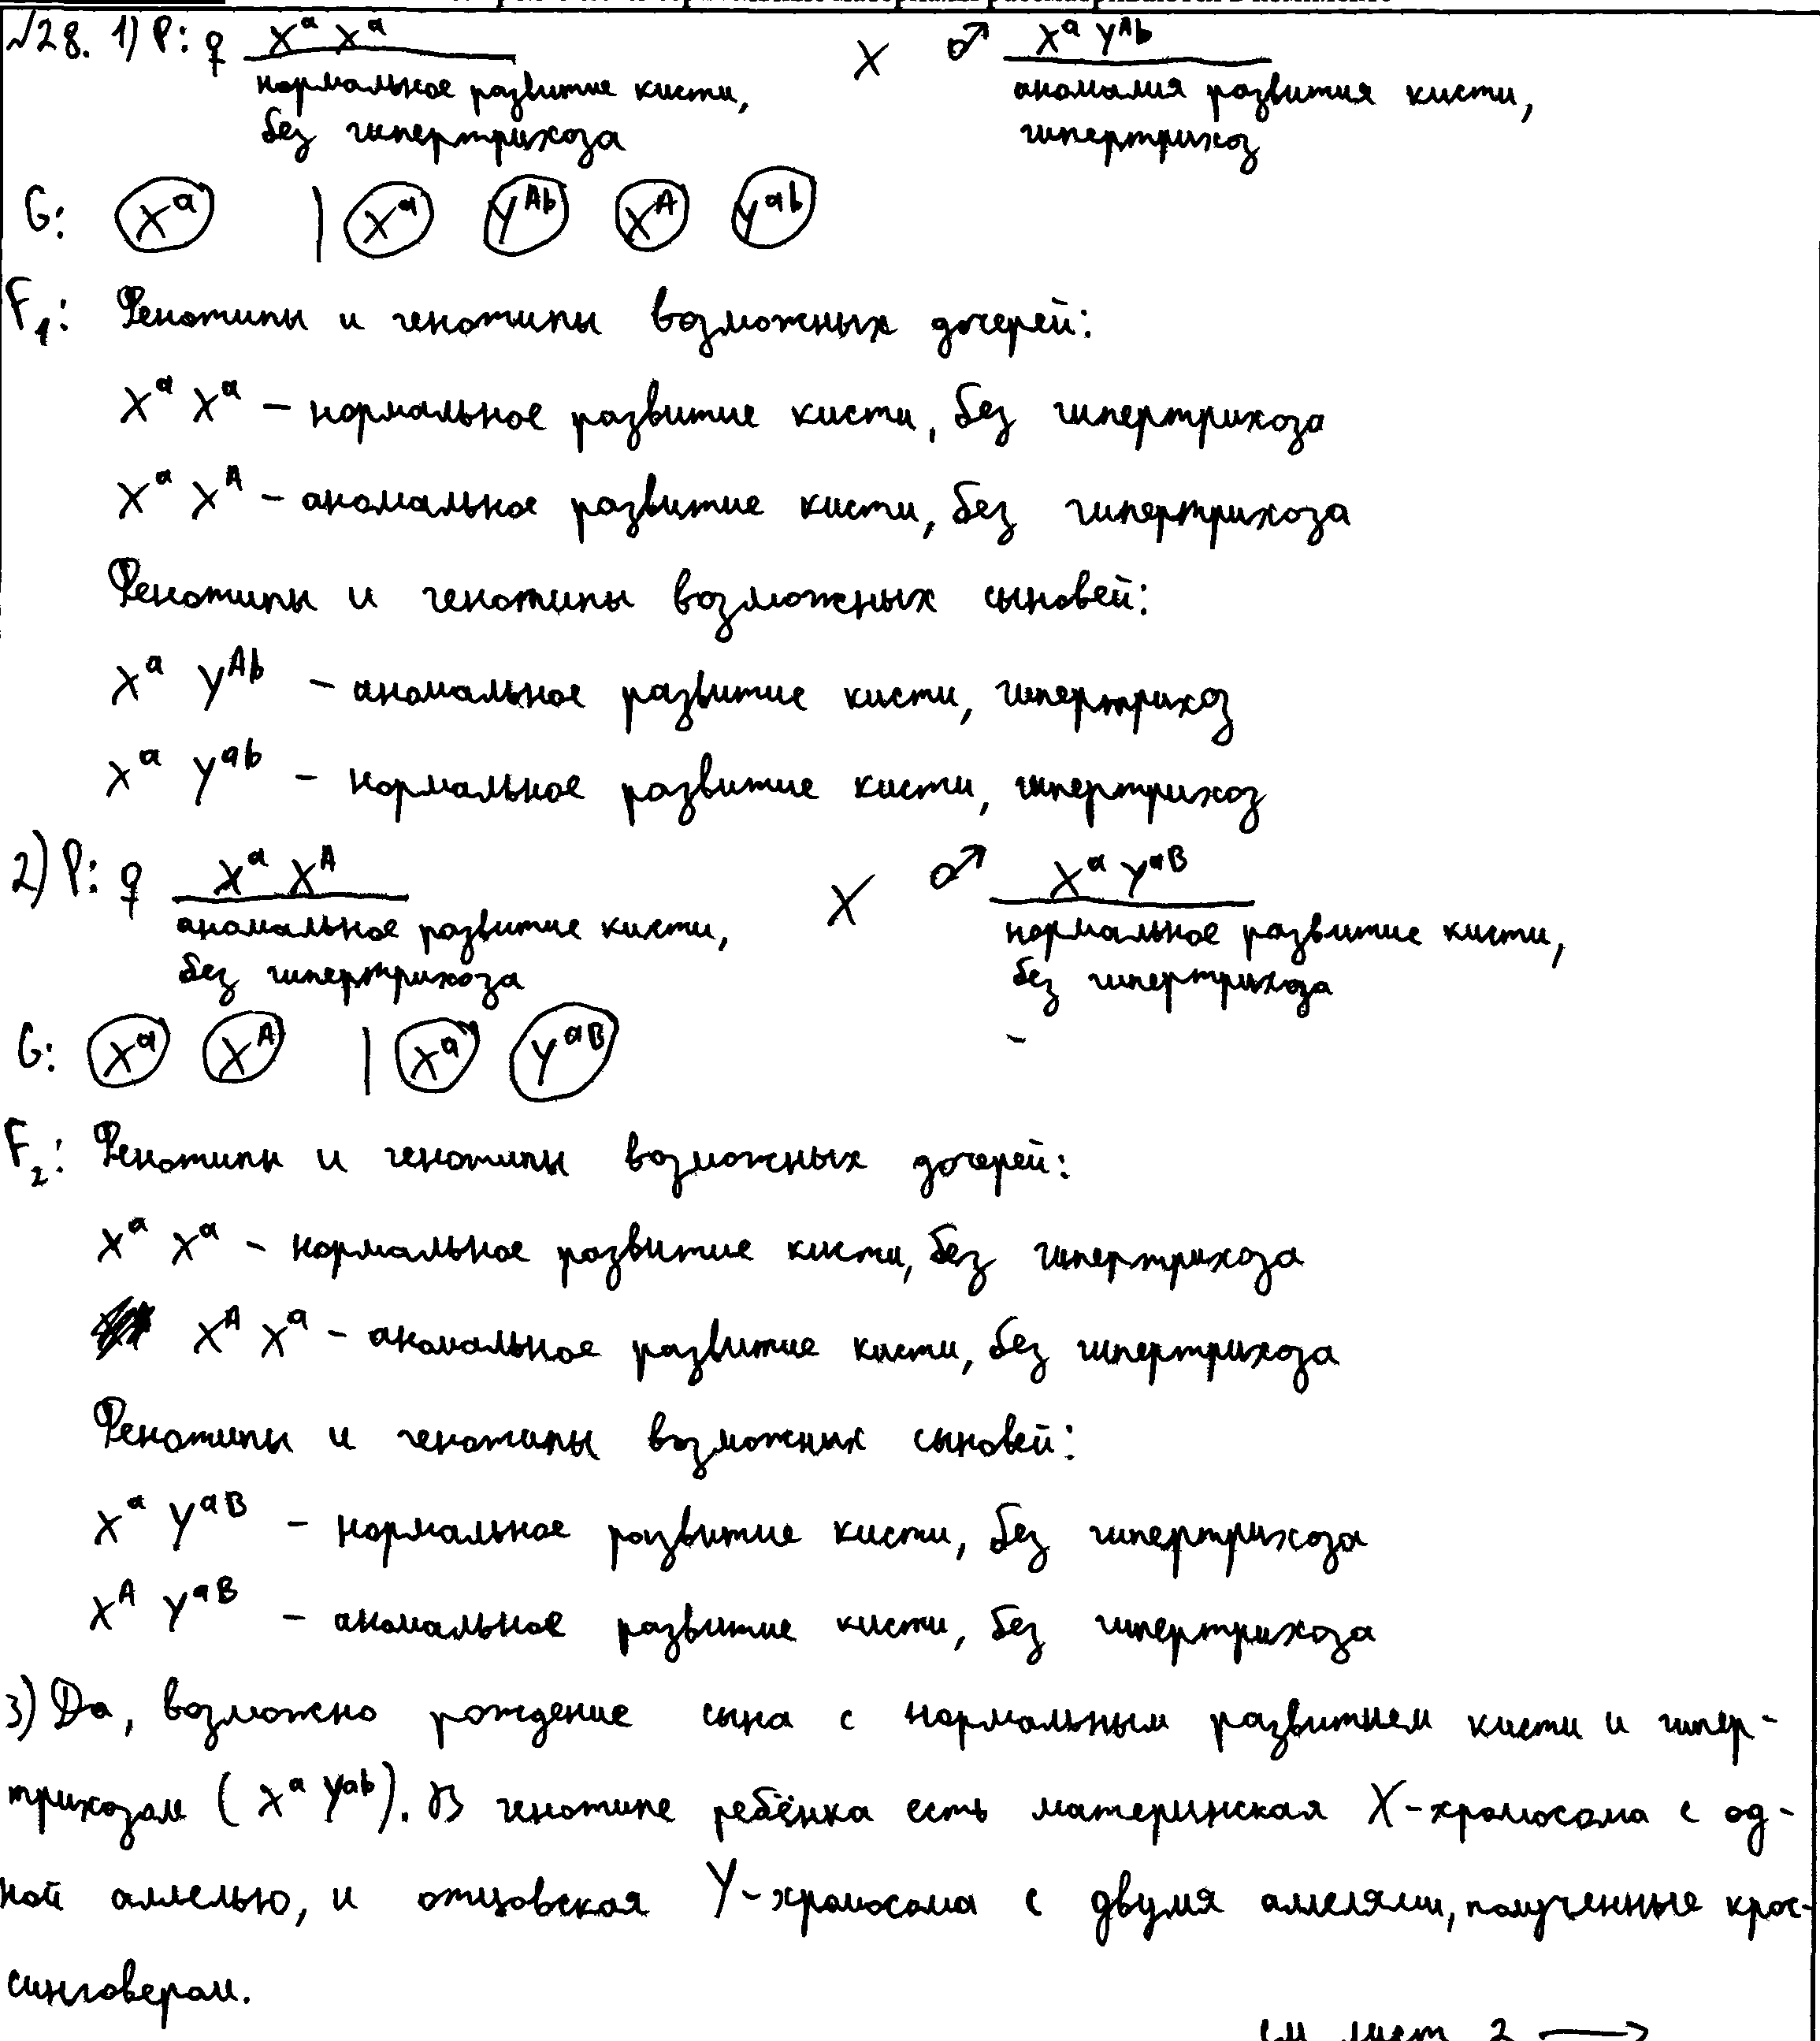 №28. 1) P: ♀ XᵃXᵃ X ♂ XᵃYᴬᵇ
нормальное развитие кисти, аномалия развития кисти,
без гипертрихоза гипертрихоз
G: Xᵃ | Xᵃ Yᴬᵇ Xᴬ Yᵃᵇ
F₁: Фенотипы и генотипы возможных дочерей:
Xᵃ Xᵃ – нормальное развитие кисти, без гипертрихоза
Xᵃ Xᴬ – аномальное развитие кисти, без гипертрихоза
Фенотипы и генотипы возможных сыновей:
Xᵃ Yᴬᵇ – аномальное развитие кисти, гипертрихоз
Xᵃ Yᵃᵇ – нормальное развитие кисти, гипертрихоз
2) P: ♀ Xᵃ Xᴬ X ♂ Xᵃ Yᵃᴮ
аномальное развитие кисти, нормальное развитие кисти,
без гипертрихоза без гипертрихоза
G: Xᵃ Xᴬ | Xᵃ Yᵃᴮ
F₂: Фенотипы и генотипы возможных дочерей:
Xᵃ Xᵃ – нормальное развитие кисти, без гипертрихоза
Xᴬ Xᵃ – аномальное развитие кисти, без гипертрихоза
Фенотипы и генотипы возможных сыновей:
Xᵃ Yᵃᴮ – нормальное развитие кисти, без гипертрихоза
Xᴬ Yᵃᴮ – аномальное развитие кисти, без гипертрихоза
3) Да, возможно рождение сына с нормальным развитием кисти и гипер-
трихозом (Xᵃ Yᵃᵇ). В генотипе ребёнка есть материнская X-хромосома с од-
ной аллелью, и отцовская Y-хромосома с двумя аллелями, полученные крос-
синговером.
см лист 2 →